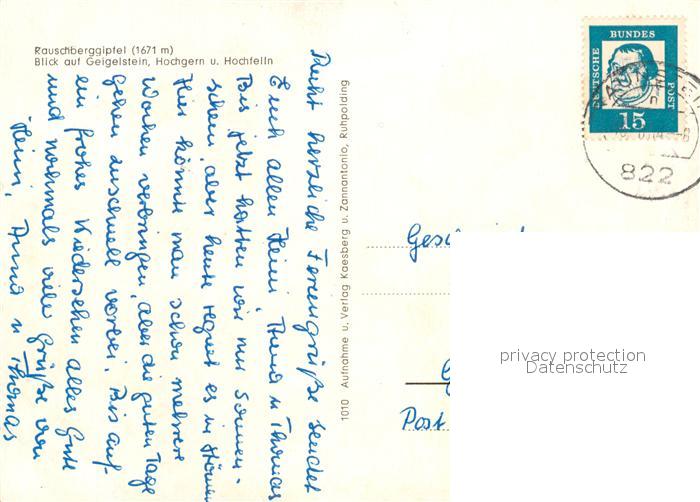 Rauschberggipfel (1671 m)
Blick auf Geigelstein, Hochgern u. Hochfelln
Recht herzliche Feriengrüße sendet
Euch allen Heini, Anna u Thomas
Bis jetzt hatten wir nur Sonnen-
schein, aber heute regnet es in Strömen
Hier könnte man schon mehrere
Wochen verbringen, aber die guten Tage
gehen zu schnell vorbei. Bis auf
ein frohes Wiedersehen alles Gute
und nochmals viele Grüße von
Heini, Anna u Thomas
1010 Aufnahme u. Verlag Kaesberg u. Zannantonio, Ruhpolding
DEUTSCHE
BUNDES
POST
15
822
Post
privacy protection
Datenschutz